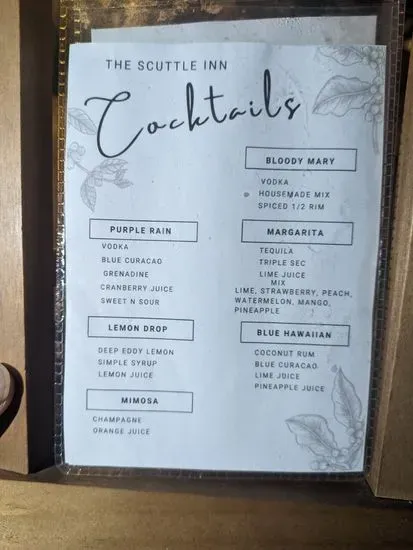 THE SCUTTLE INN
Cocktails
BLOODY MARY
VODKA
HOUSEMADE MIX
SPICED 1/2 RIM
PURPLE RAIN
VODKA
BLUE CURACAO
GRENADINE
CRANBERRY JUICE
SWEET N SOUR
MARGARITA
TEQUILA
TRIPLE SEC
LIME JUICE
MIX
LIME, STRAWBERRY, PEACH,
WATERMELON, MANGO,
PINEAPPLE
LEMON DROP
DEEP EDDY LEMON
SIMPLE SYRUP
LEMON JUICE
BLUE HAWAIIAN
COCONUT RUM
BLUE CURACAO
LIME JUICE
PINEAPPLE JUICE
MIMOSA
CHAMPAGNE
ORANGE JUICE